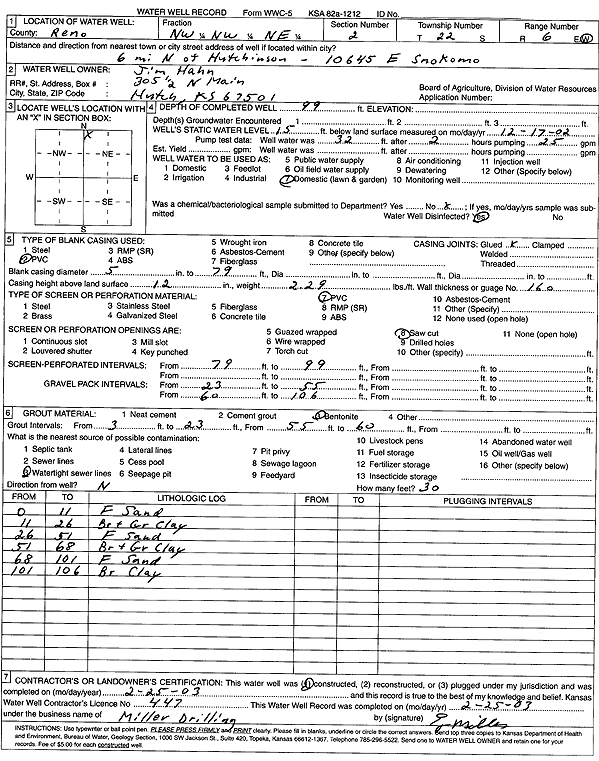 WATER WELL RECORD Form WWC-5 KSA 82a-1212 ID No.
1 LOCATION OF WATER WELL: Fraction Section Number Township Number Range Number
County: Reno NW ¼ NW ¼ NE ¼ 2 T 22 S R 6 E W
Distance and direction from nearest town or city street address of well if located within city?
6 mi N of Hutchinson - 10645 E Smokomo
2 WATER WELL OWNER: Jim Hahn
RR#, St. Address, Box # : 305½ N Main Board of Agriculture, Division of Water Resources
City, State, ZIP Code : Hutch, KS 67501 Application Number:
3 LOCATE WELL'S LOCATION WITH AN "X" IN SECTION BOX:
N
X
NW NE
W E
SW SE
S
4 DEPTH OF COMPLETED WELL 99 ft. ELEVATION:
Depth(s) Groundwater Encountered 1 ft. 2 ft. 3 ft.
WELL'S STATIC WATER LEVEL 15 ft. below land surface measured on mo/day/yr 12-17-02
Pump test data: Well water was 32 ft. after 2 hours pumping 25 gpm
Est. Yield gpm: Well water was ft. after hours pumping gpm
WELL WATER TO BE USED AS: 5 Public water supply 8 Air conditioning 11 Injection well
1 Domestic 3 Feedlot 6 Oil field water supply 9 Dewatering 12 Other (Specify below)
2 Irrigation 4 Industrial 7 Domestic (lawn & garden) 10 Monitoring well
Was a chemical/bacteriological sample submitted to Department? Yes No X ; If yes, mo/day/yrs sample was submitted Water Well Disinfected? Yes No
5 TYPE OF BLANK CASING USED: 5 Wrought iron 8 Concrete tile CASING JOINTS: Glued X Clamped
1 Steel 3 RMP (SR) 6 Asbestos-Cement 9 Other (specify below) Welded
2 PVC 4 ABS 7 Fiberglass Threaded
Blank casing diameter 5 in. to 79 ft., Dia in. to ft., Dia in. to ft.
Casing height above land surface 12 in., weight 2.29 lbs./ft. Wall thickness or guage No. 160
TYPE OF SCREEN OR PERFORATION MATERIAL: 7 PVC 10 Asbestos-Cement
1 Steel 3 Stainless Steel 5 Fiberglass 8 RMP (SR) 11 Other (Specify)
2 Brass 4 Galvanized Steel 6 Concrete tile 9 ABS 12 None used (open hole)
SCREEN OR PERFORATION OPENINGS ARE: 5 Guazed wrapped 8 Saw cut 11 None (open hole)
1 Continuous slot 3 Mill slot 6 Wire wrapped 9 Drilled holes
2 Louvered shutter 4 Key punched 7 Torch cut 10 Other (specify) ft.
SCREEN-PERFORATED INTERVALS: From 79 ft. to 99 ft., From ft. to ft.
From ft. to ft., From ft. to ft.
GRAVEL PACK INTERVALS: From 23 ft. to 55 ft., From ft. to ft.
From 60 ft. to 106 ft., From ft. to ft.
6 GROUT MATERIAL: 1 Neat cement 2 Cement grout 3 Bentonite 4 Other
Grout Intervals: From 3 ft. to 23 ft., From 55 ft. to 60 ft., From ft. to ft.
What is the nearest source of possible contamination: 10 Livestock pens 14 Abandoned water well
1 Septic tank 4 Lateral lines 7 Pit privy 11 Fuel storage 15 Oil well/Gas well
2 Sewer lines 5 Cess pool 8 Sewage lagoon 12 Fertilizer storage 16 Other (specify below)
3 Watertight sewer lines 6 Seepage pit 9 Feedyard 13 Insecticide storage
Direction from well? N How many feet? 30
FROM TO LITHOLOGIC LOG FROM TO PLUGGING INTERVALS
0 11 F Sand
11 26 Br + Gr Clay
26 51 F Sand
51 68 Br + Gr Clay
68 101 F Sand
101 106 Br Clay
7 CONTRACTOR'S OR LANDOWNER'S CERTIFICATION: This water well was (1) constructed, (2) reconstructed, or (3) plugged under my jurisdiction and was
completed on (mo/day/year) 2-25-03 and this record is true to the best of my knowledge and belief. Kansas
Water Well Contractor's Licence No 447 This Water Well Record was completed on (mo/day/yr) 2-25-03
under the business name of Miller Drilling by (signature) Miller
INSTRUCTIONS: Use typewriter or ball point pen. PLEASE PRESS FIRMLY and PRINT clearly. Please fill in blanks, underline or circle the correct answers. Send top three copies to Kansas Department of Health
and Environment, Bureau of Water, Geology Section, 1000 SW Jackson St., Suite 420, Topeka, Kansas 66612-1367. Telephone 785-296-5522. Send one to WATER WELL OWNER and retain one for your
records. Fee of $5.00 for each constructed well.